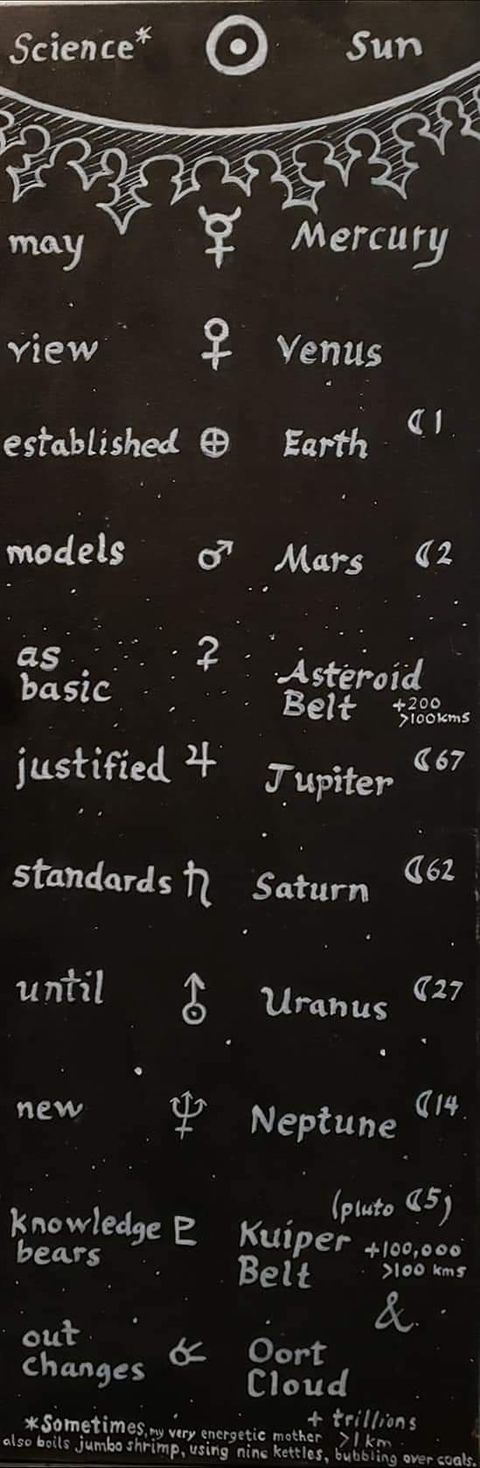 Science* Sun
may Mercury
view Venus
established Earth 1
models Mars 2
as
basic Asteroid
Belt +200
>100kms
justified Jupiter 67
standards Saturn 62
until Uranus 27
new Neptune 14
(pluto 5)
knowledge Kuiper +100,000
bears Belt >100 kms
&
out Oort
changes Cloud
+ trillions
*Sometimes, my very energetic mother >1km
also boils jumbo shrimp, using nine kettles, bubbling over coals.